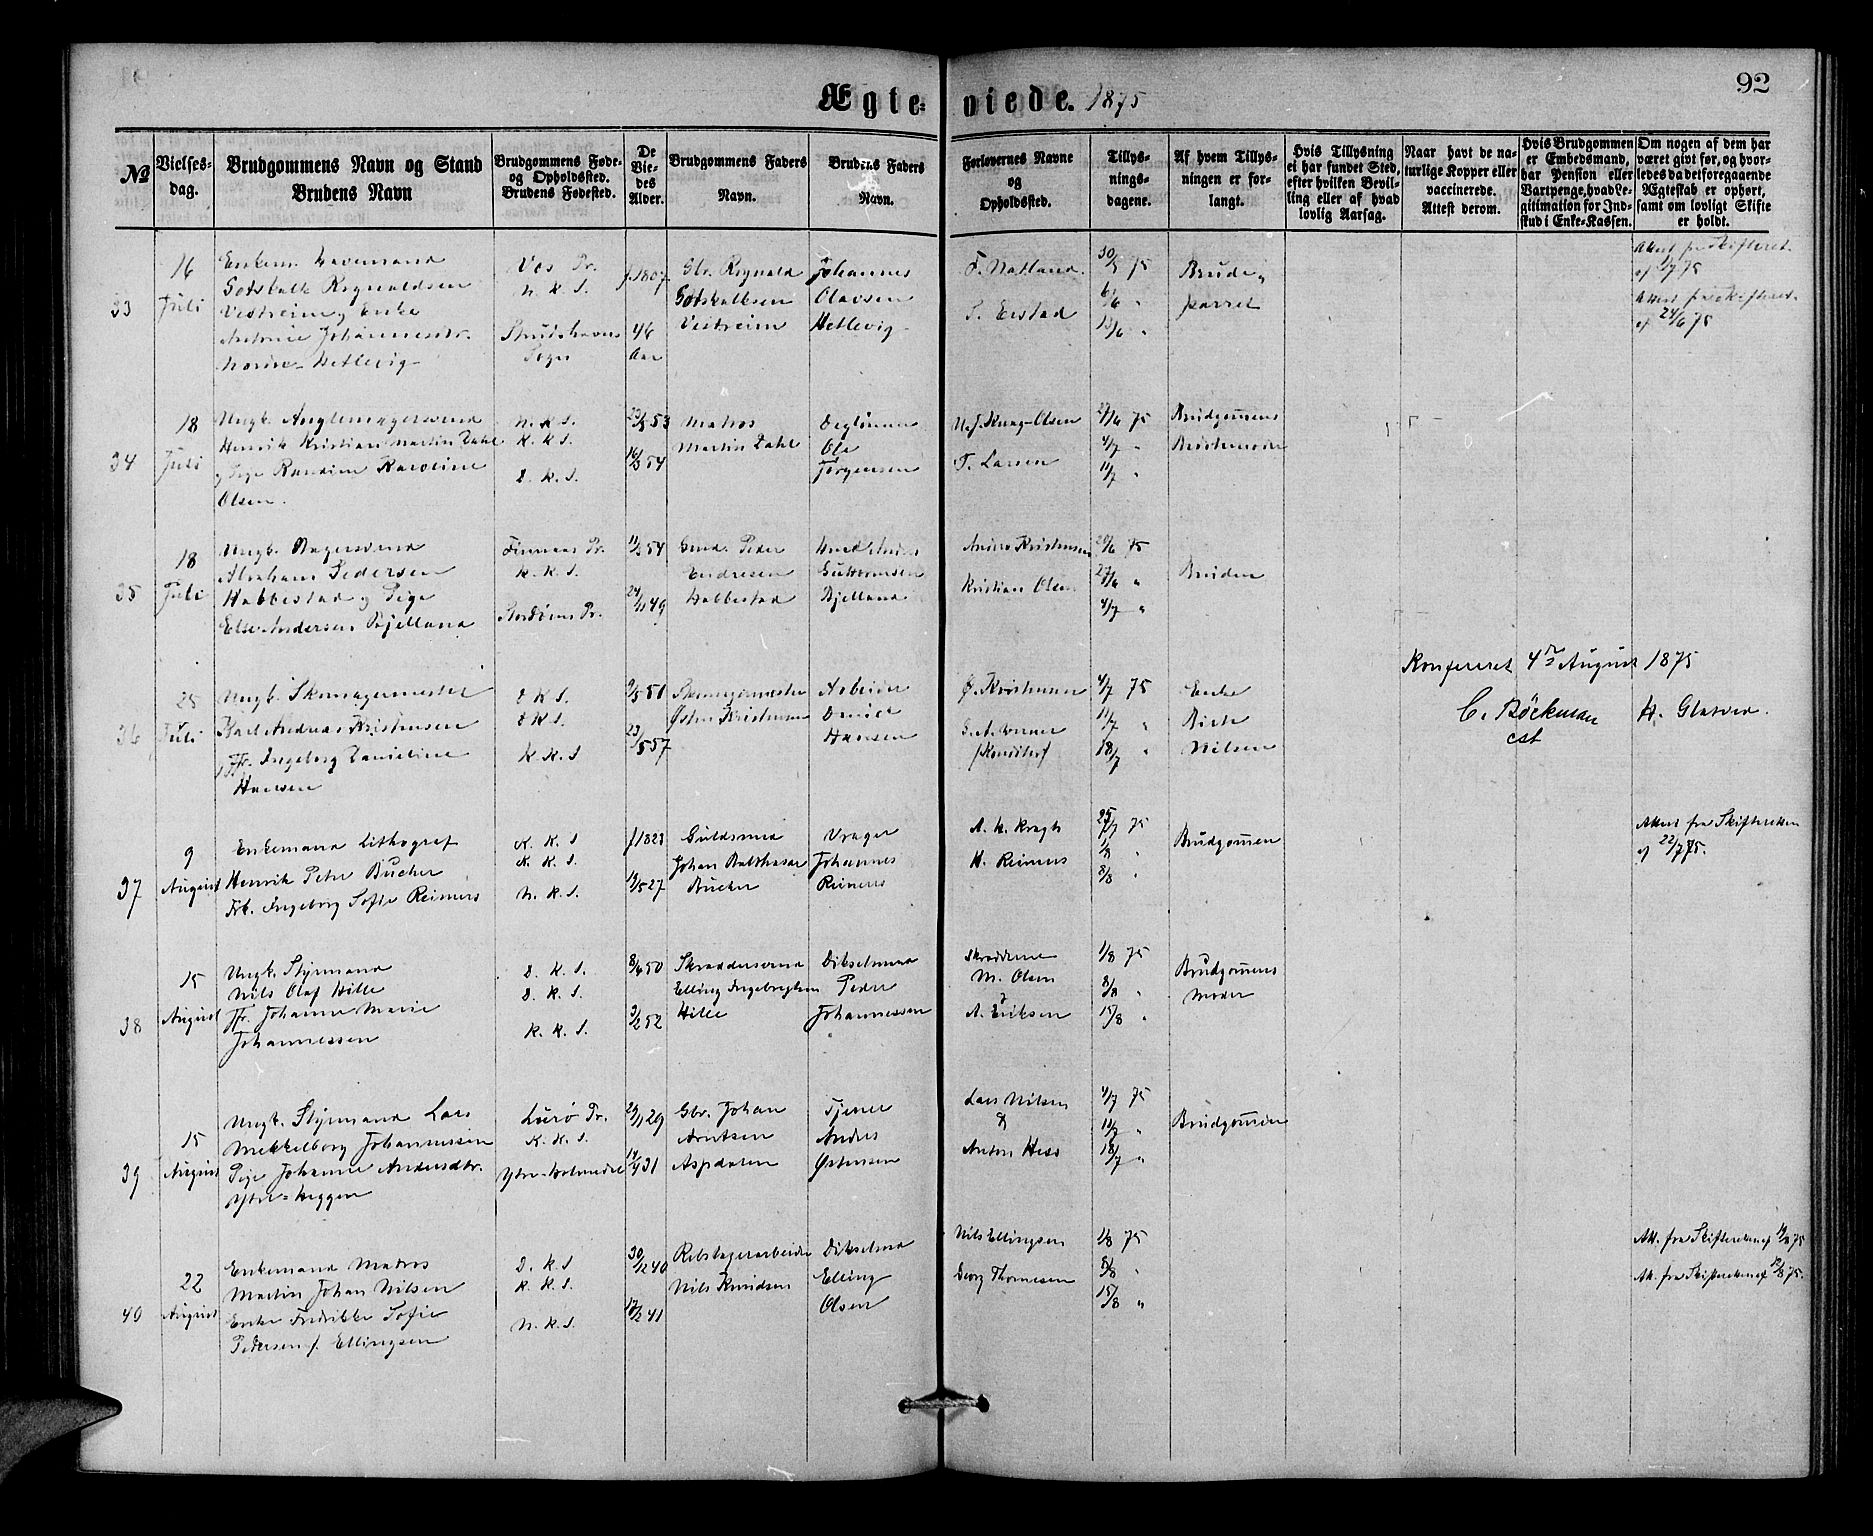 Ægteviede. 1875
92
№
Vielses-
dag.
Brudgommens Navn og Stand
Brudens Navn
Brudgommens Føde-
og Opholdssted.
Brudens Fødested.
De
Vie-
des
Alder.
Brudgommens Faders
Navn.
Brudens Faders
Navn.
Forlovernes Navne
og
Opholdssted.
Tillys-
nings-
dagene.
Af hvem Tillys-
ningen er for-
langt.
Hvis Tillysning
ei har fundet Sted,
efter hvilken Bevil-
ling eller af hvad
lovlig Aarsag.
Naar havt de na-
turlige Kopper eller
vaccinerede.
Attest derom.
Hvis Brudgommen
er Embedsmand,
har Pension eller
Vartpenge, hvad Le-
gitimation for Ind-
skud i Enke-Kassen.
Om nogen af dem har
været givt før, og hvor-
ledes da det foregaaende
Ægteskab er ophørt,
samt om lovligt Skifte
er holdt.
33
16
Juli
Enkem.
Gotskalk Rognaldsen
Vestreim og Enke
Antonie Johannesdtr.
Hetlevig
Vos Pr.
N. K. S.
Strudshavns
Sogn
f. 1807
46
Aar
Gbr. Rognald
Gotskalksen
Vestreim
Johannes
Olavsen
Hetlevig
T. Natland.
S. Eerstad
30/5 75
6/6 "
13/6 "
Brude-
parret
Attest fr Skifteret.
af 1/7 75
Attest fr Skifteret.
af 24/6 75
34
18
Juli
Ungk.
Henrik Kristian Martin Dahl
og Pige Randine Karoline
Olsen.
N. K. S.
K. K. S.
D. K. S.
23/5 53
16/3 54
Matros
Martin Dahl
Ole
Jørgensen
Olsen
T. Larsen
27/6 75
4/7 "
11/7 "
Brudgommens
35
18
Juli
Ungk. Bagersvend
Abraham Pedersen
Habbestad og Pige
Else Andersen Bjelland
Finnaas Pr.
K. K. S.
Pr.
11/2 54
24/11 49
Gmd. Peder
Endresen
Habbestad
Guttormsen
Bjelland
Anders Kristensen
Kristian Olsen
20/6 75
27/6 "
4/7 "
Bruden
Konfereret 4de August 1875
C. Böckman
cst
H. Glatved.
36
25
Juli
Ungk. Skomagermester
Karl Andreas Kristensen
og Jfr. Ingeborg Danieline
Hansen
D K S.
D K S.
K. K. S
9/5 51
23/5 57
Skomagermester
Østen Kristensen
Arbeider
David
Hansen
Ø. Kristensen
4/7 75
11/7 "
18/7 "
Enke
Birte
Nilsen
37
9
August
Enkemand Lithograf
Henrik Peter Bucher
Frk. Ingeborg Sofie Reimers
K. K. S
K. K. S.
N. K. S.
f 1823
19/5 27
Guldsmed
Johan Balthasar
Bucher
Vrager
Johannes
Reimers
A. H. Kragh
H. Reimers
25/7 75
1/8 "
8/8 "
Brudgommen
Attest fra Skifteretten
af 22/7 75.
38
15
August
Ungk. Styrmand
Nils Olaf Hille
Jfr. Johanne Marie
Johannessen
D. K. S.
D. K. S.
K. K. S.
8/6 50
3/2 52
Skræddersvend
Elling Ingebrigtsen
Hille
Dikselmand
Peder
Johannessen
Skrædderne
M. Olsen
A. Eriksen
1/8 75
8/8 "
15/8 "
Brudgommens
Moder
39
15
August
Ungk. Styrmand Lars
Mekkelborg Johannessen
Pige Johanne Andersdtr.
Ytre-Heggen
Lurø Pr.
K. K. S.
Ytre-Holmedal
29/11 29
14/4 31
Gbr. Johan
Arntsen
Aspdalen
Tjener
Andres
Østensen
Lars Nilsen
&
Anton Hess
4/7 75
11/7 "
18/7 "
Brudgommen
40
22
August
Enkemand Matros
Martin Johan Nilsen
Enke Fredrikke Sofie
Pedersen f. Ellingsen
D. K. S
K. K. S.
N. K. S.
30/12 40
17/2 41
Rebslagerarbeider
Nils Knudsen
Dikselmd
Elling
Olsen
Nils Ellingsen
Georg Thomesen
1/8 75
8/8 "
15/8 "
Att. fra Skifteretten af 19/8 75
Att. fra Skifteretten af 12/8 75.